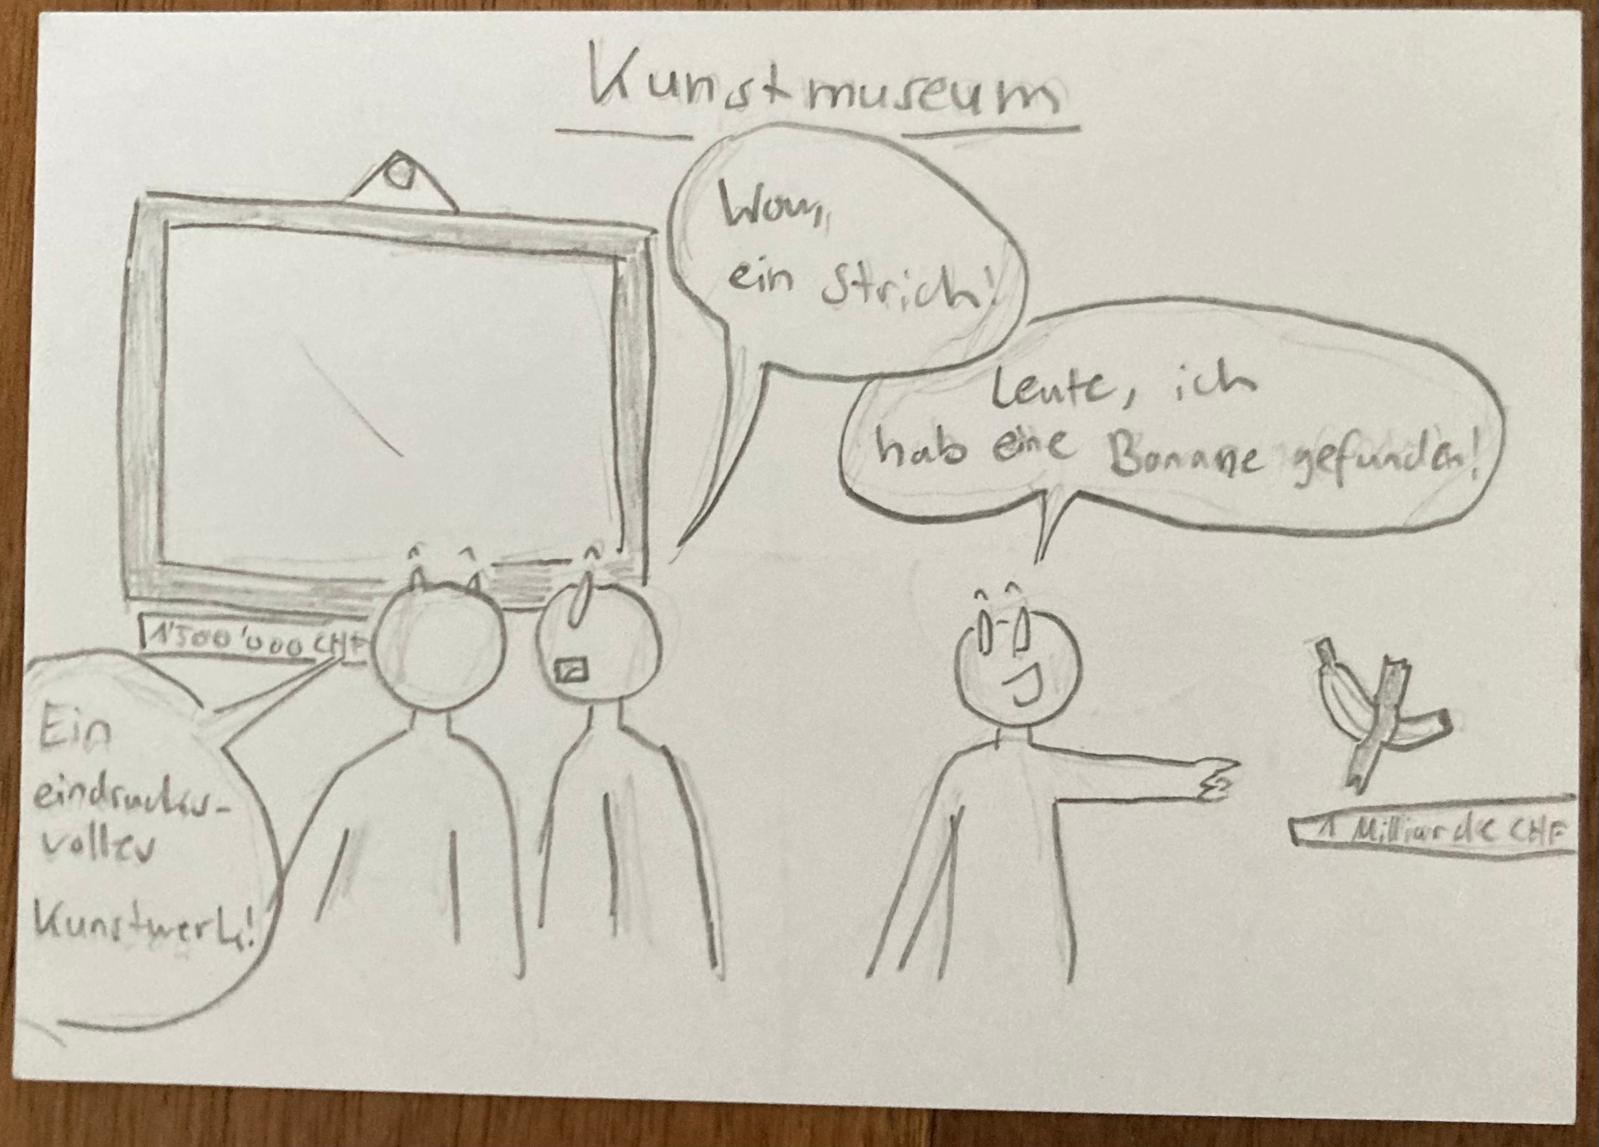 Kunstmuseum
Wow,
ein Strich!
Leute, ich
hab eine Banane gefunden!
1'500'000 CHF
Ein
eindrucks-
volles
Kunstwerk!
1 Milliarde CHF